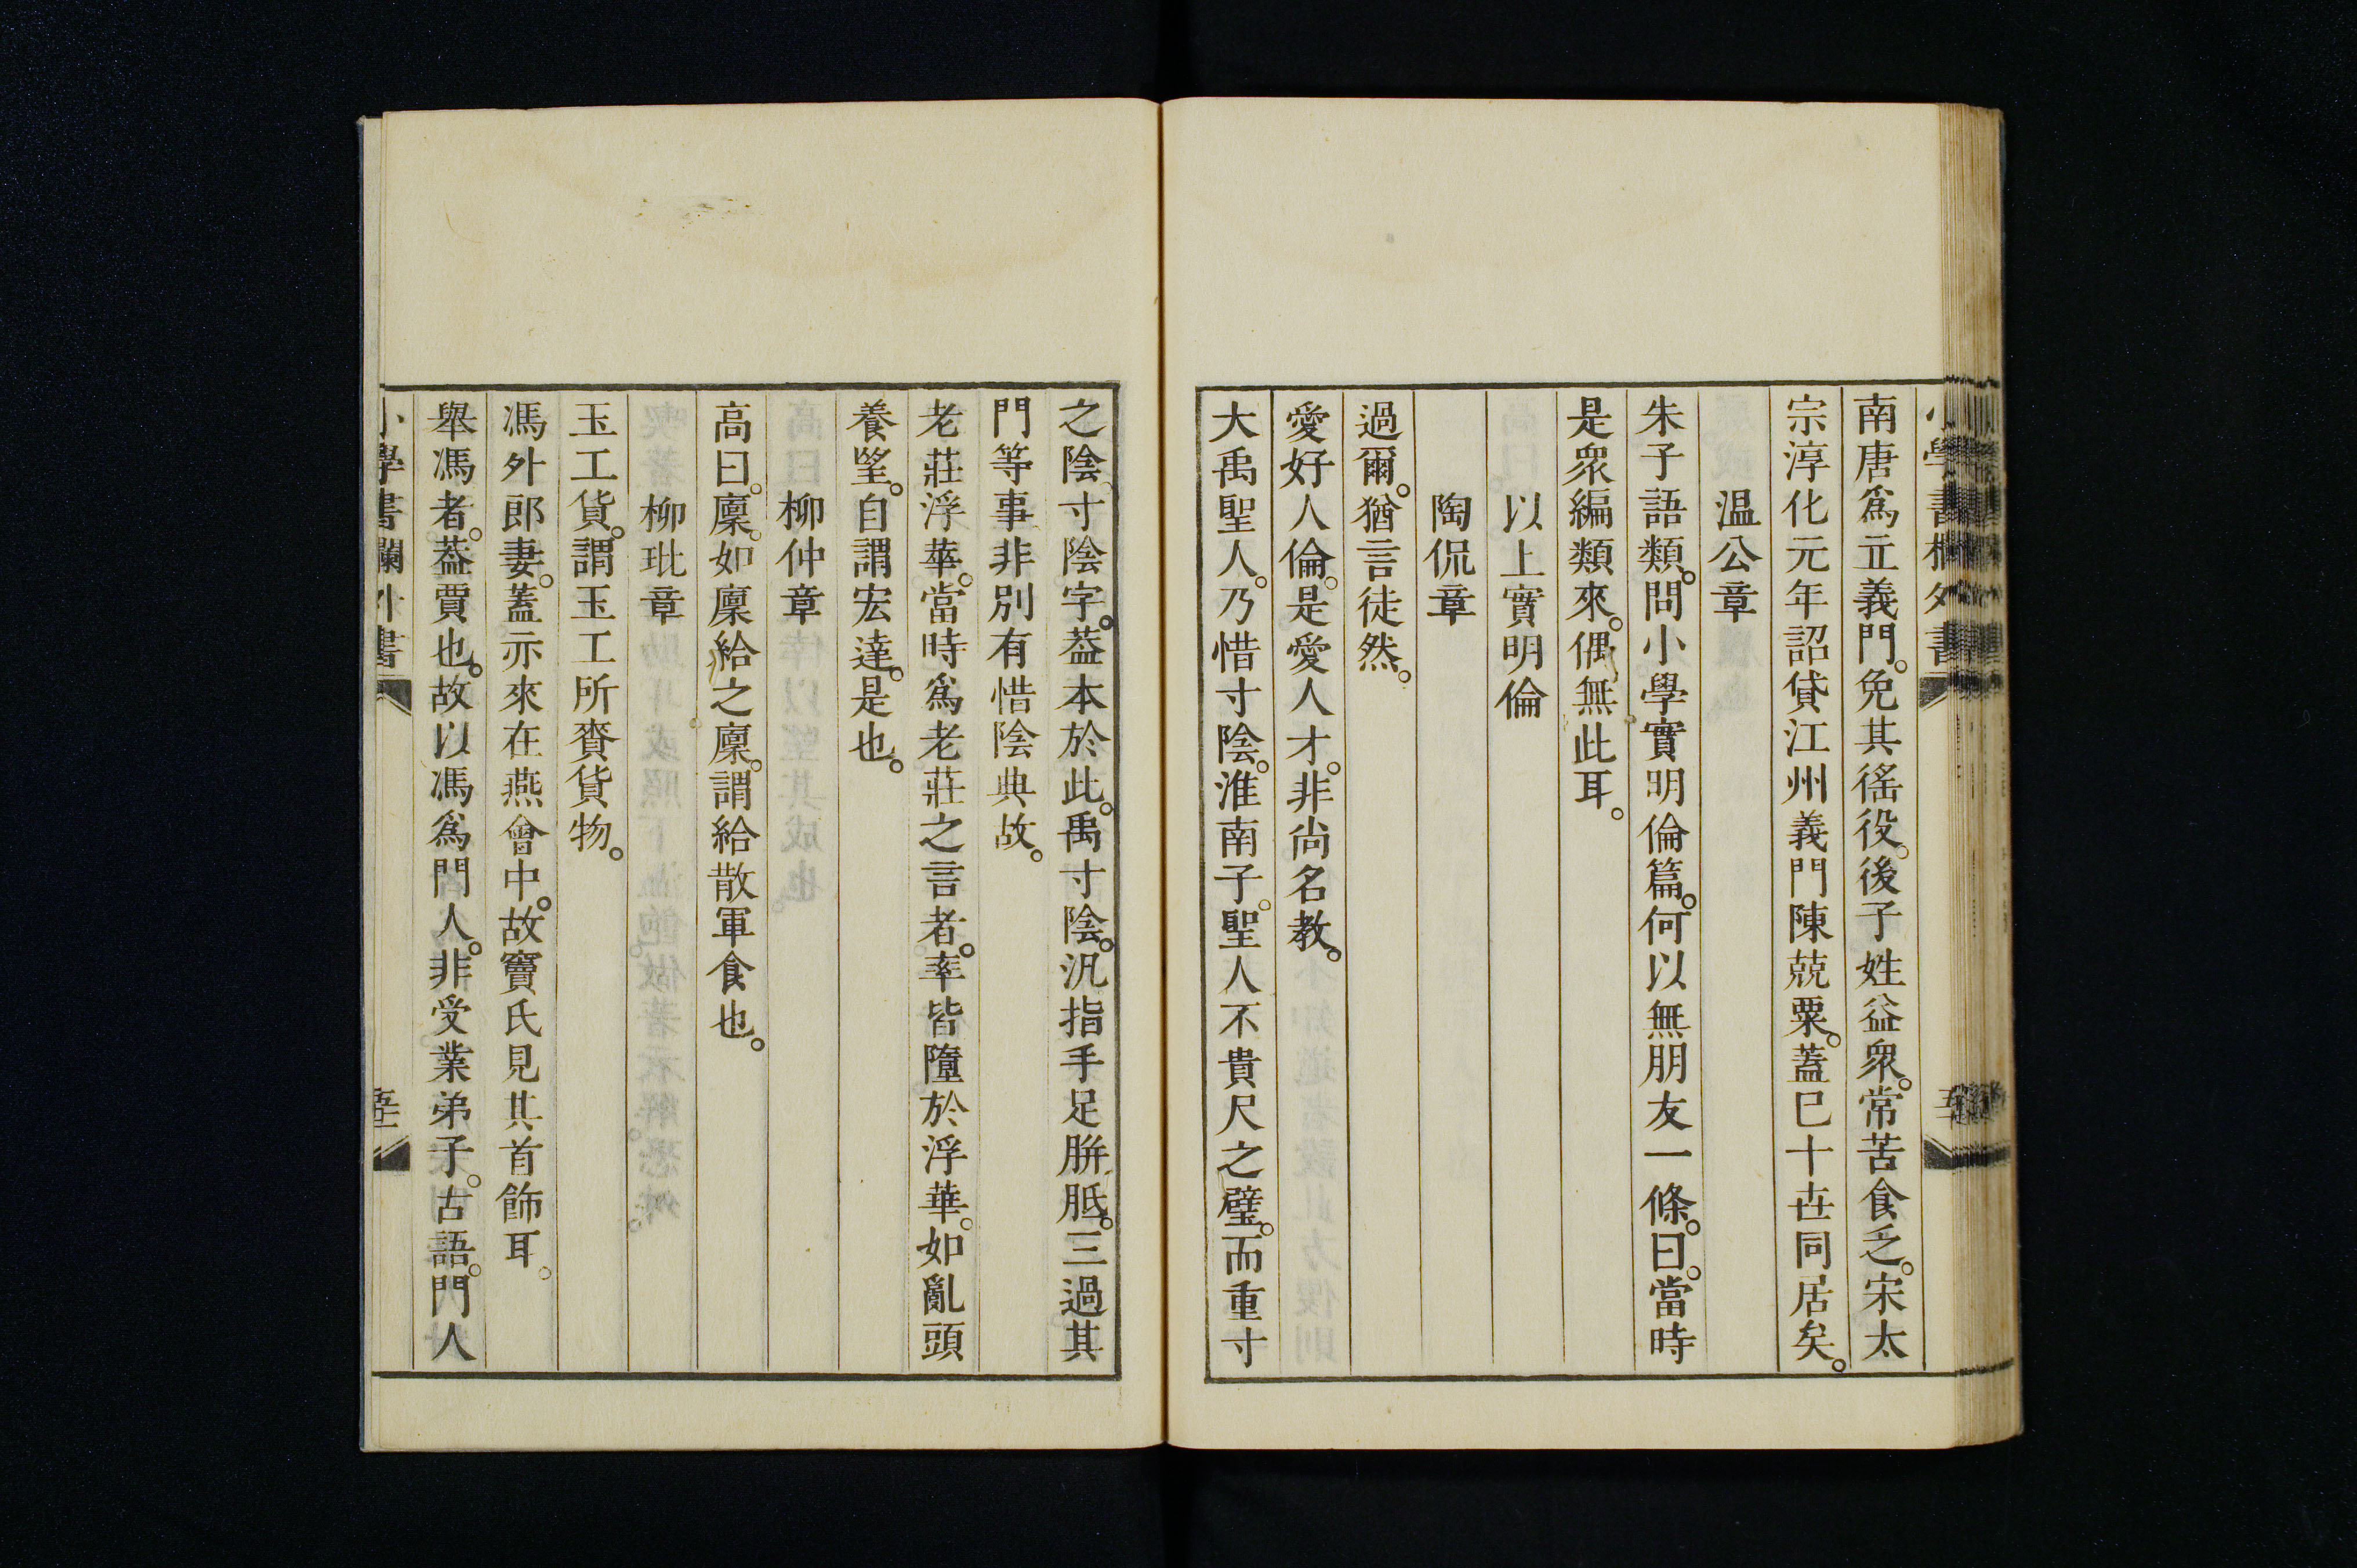 南唐爲立義門。免其徭役。後子姓益衆。常苦食乏。宋太
宗淳化元年詔貸江州義門陳兢粟。蓋巳十世同居矣。
溫公章
朱子語類。問小學實明倫篇。何以無朋友一條。曰。當時
是衆編類來。偶無此耳。
以上實明倫
陶侃章
過爾。猶言徒然。
愛好人倫。是愛人才。非尚名教。
大禹聖人。乃惜寸陰。淮南子。聖人不貴尺之璧。而重寸
之陰寸陰字。葢本於此。禹寸陰。汎指手足胼胝。三過其
門等事非別有惜陰典故。
老莊浮華。當時爲老莊之言者。率皆墮於浮華。如亂頭
養望。自謂宏達。是也。
柳仲章
高曰。廩。如廩給之廩。謂給散軍食也。
柳玭章
玉工貨。謂玉工所賚貨物。
馮外郎妻。蓋示來在燕會中。故竇氏見其首飾耳。
舉馮者。葢賈也。故以馮爲門人。非受業弟子。古語。門人
小學書欄外書